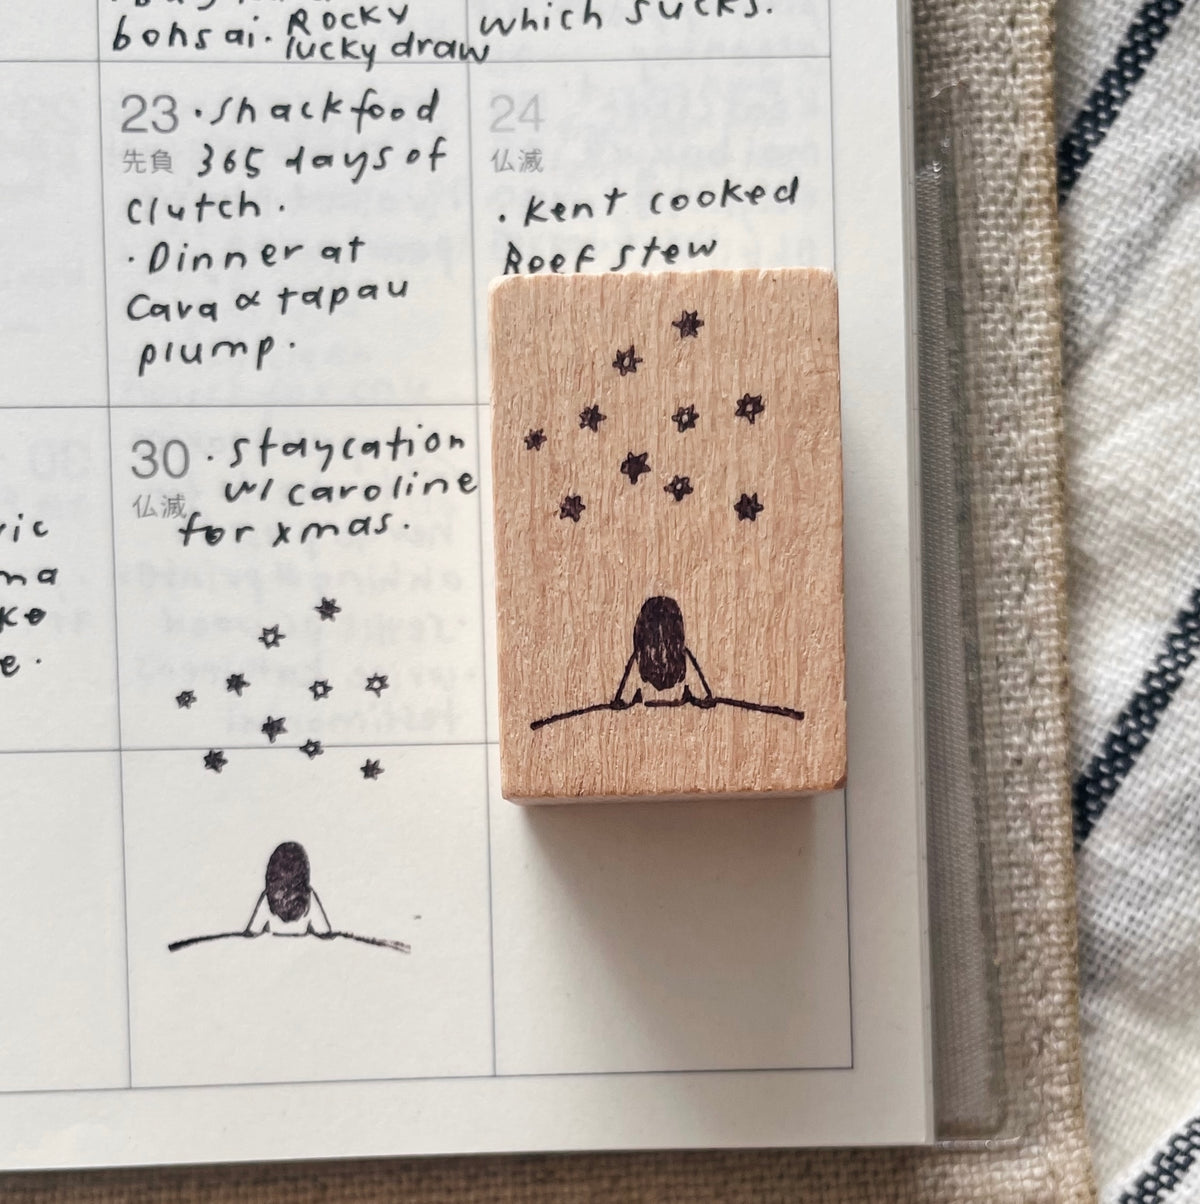 bonsai. Rocky
lucky draw
which sucks.
23 · shackfood
先負 365 days of
clutch.
· Dinner at
Cava & tapau
plump.
24
仏滅
· Kent cooked
Beef stew
30 · staycation
仏滅 w/ caroline
for xmas.
ric
ma
ke
e.